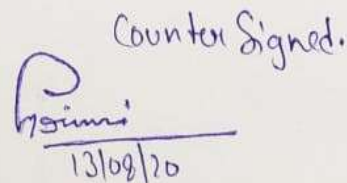 Counter Signed.
13/08/20